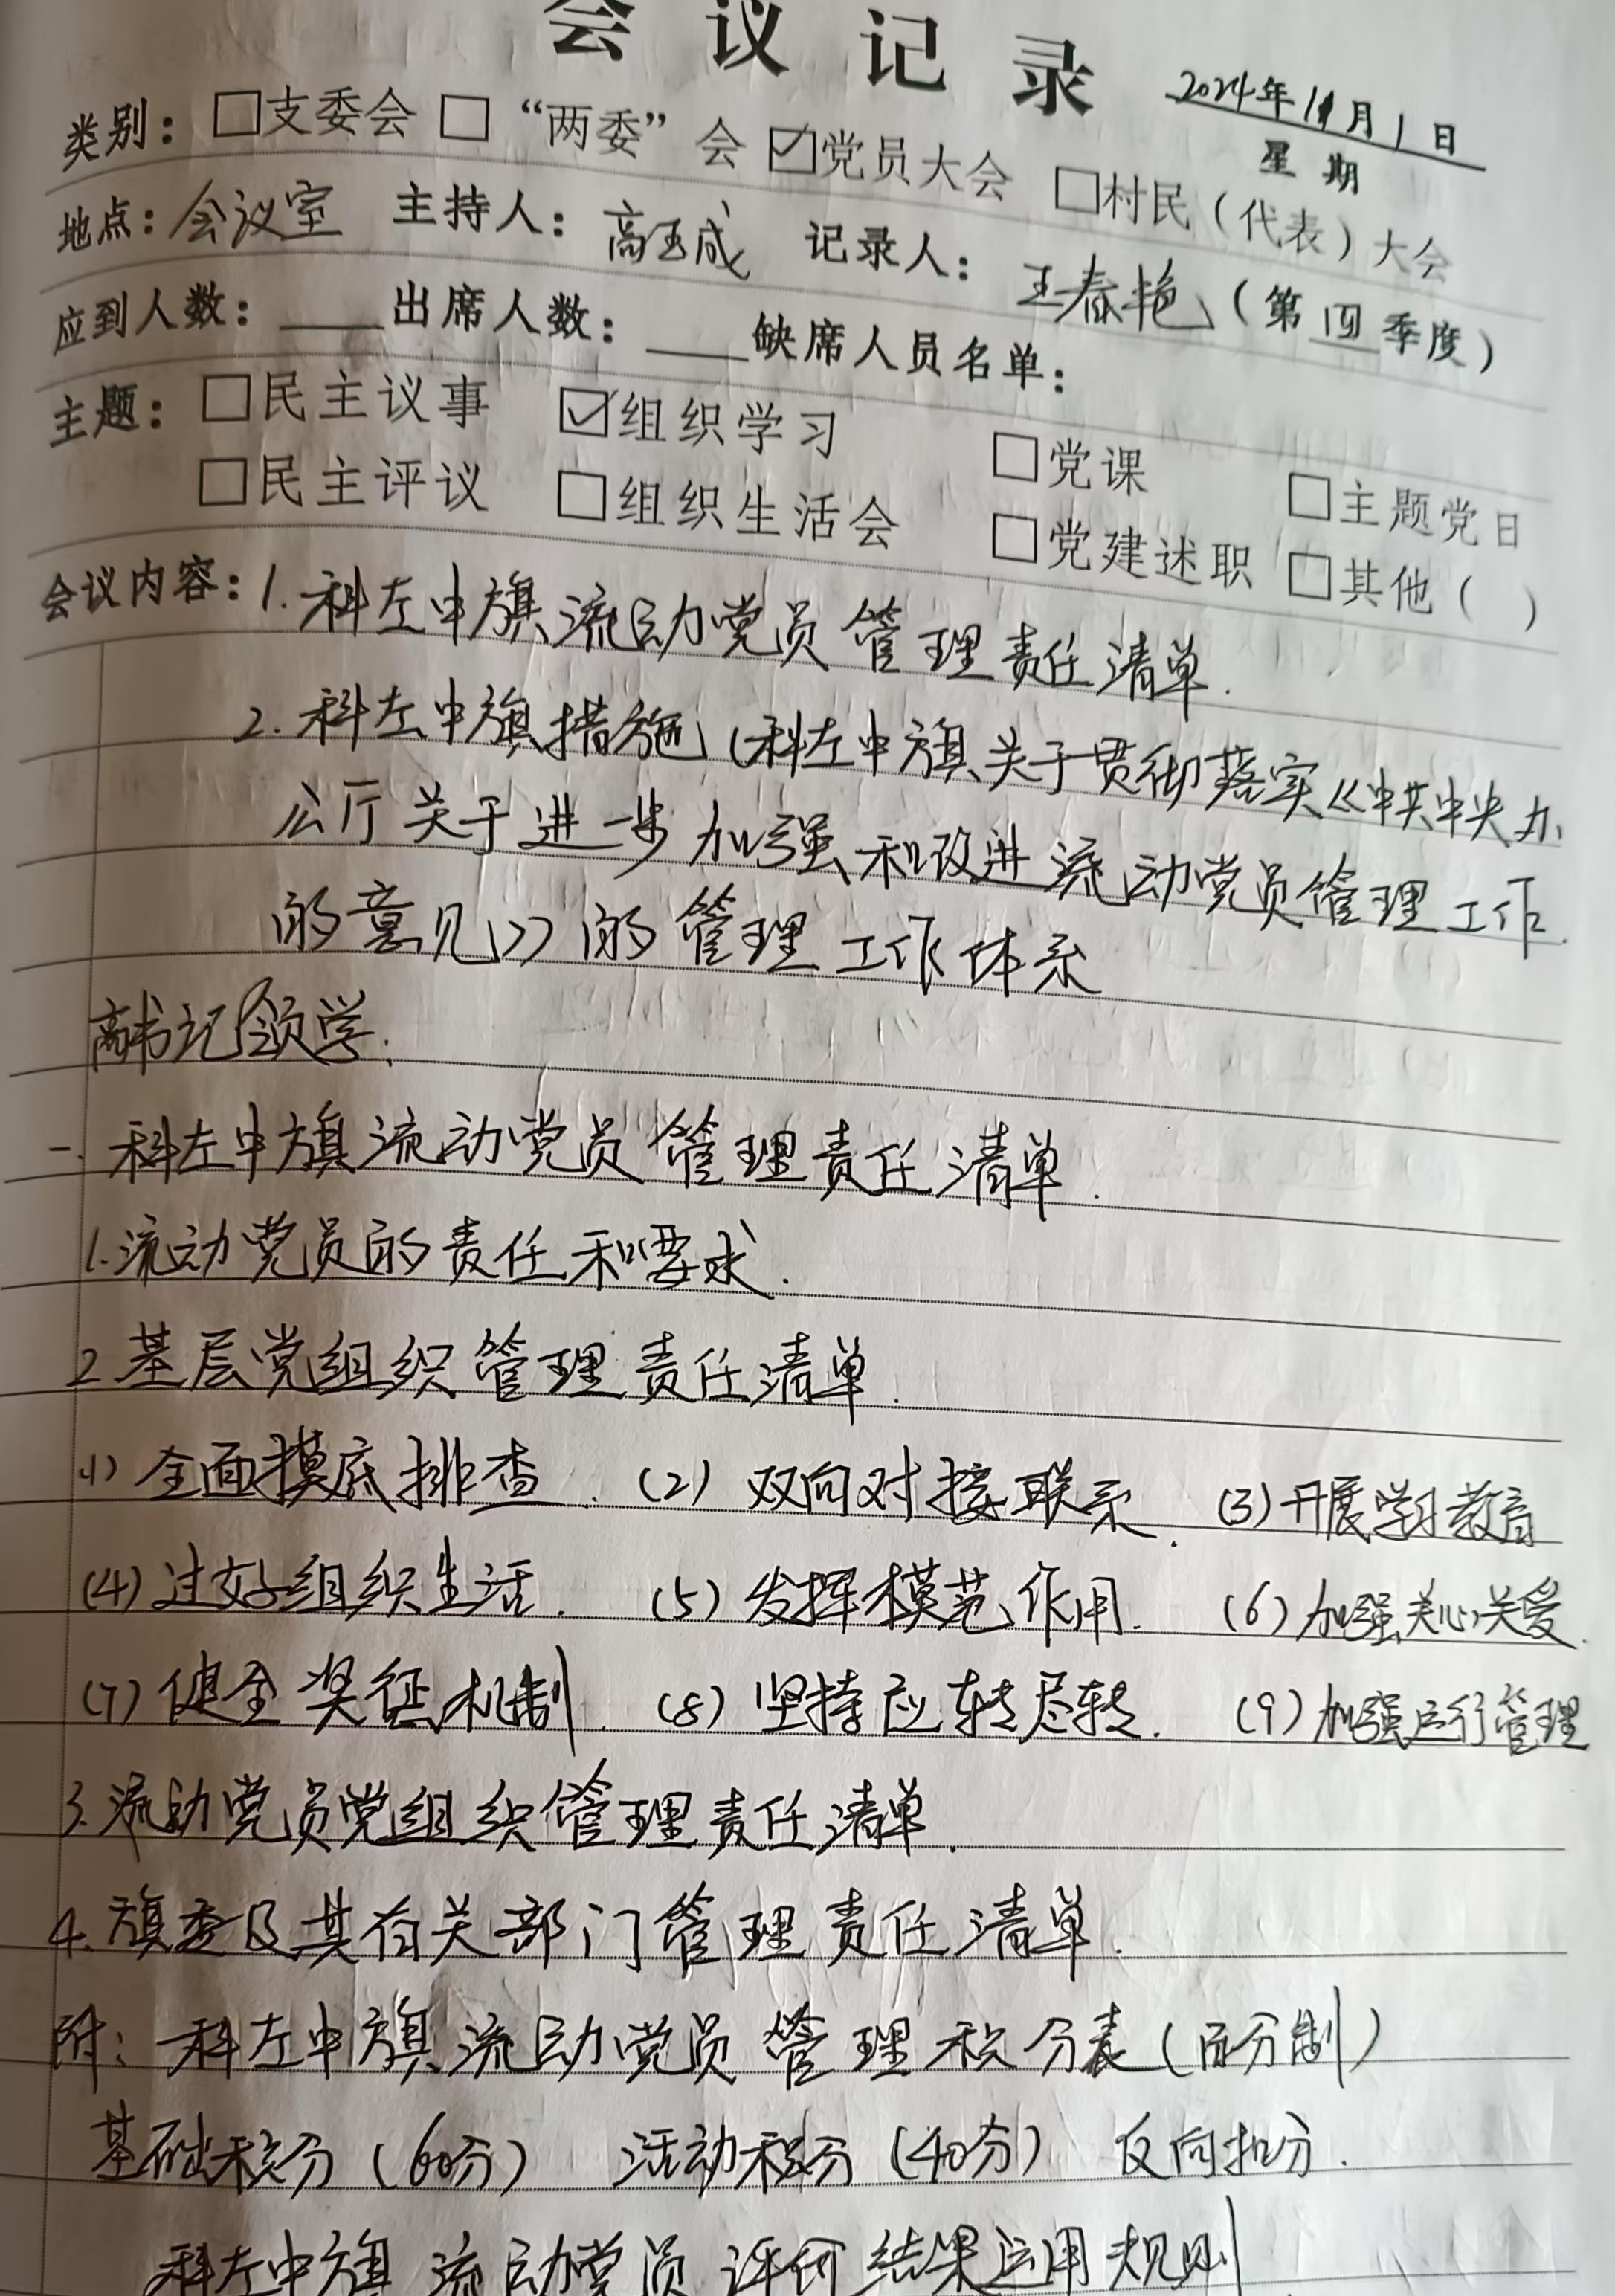 会议记录
2024年11月1日
星期
类别：□支委会 □“两委”会 ☑党员大会 □村民（代表）大会
地点：会议室 主持人：高玉成 记录人：王春艳（第四季度）
应到人数：____出席人数：____缺席人员名单：
主题：□民主议事 ☑组织学习 □党课 □主题党日
□民主评议 □组织生活会 □党建述职 □其他（ ）
会议内容：1.科左中旗流动党员管理责任清单.
2.科左中旗措施（科左中旗关于贯彻落实《中共中央办
公厅关于进一步加强和改进流动党员管理工作.
的意见》》的管理工作体系
高书记领学:
一.科左中旗流动党员管理责任清单.
1.流动党员的责任和要求.
2.基层党组织管理责任清单.
(1)全面摸底排查. (2)双向对接联系. (3)开展学习教育
(4)过好组织生活. (5)发挥模范作用. (6)加强关心关爱.
(7)健全奖征机制. (8)坚持应转尽转. (9)加强运行管理
3.流动党员党组织管理责任清单.
4.旗委及其有关部门管理责任清单.
附:科左中旗流动党员管理积分表(百分制)
基础积分(60分) 活动积分(40分) 反向扣分.
科左中旗流动党员评价结果运用规则